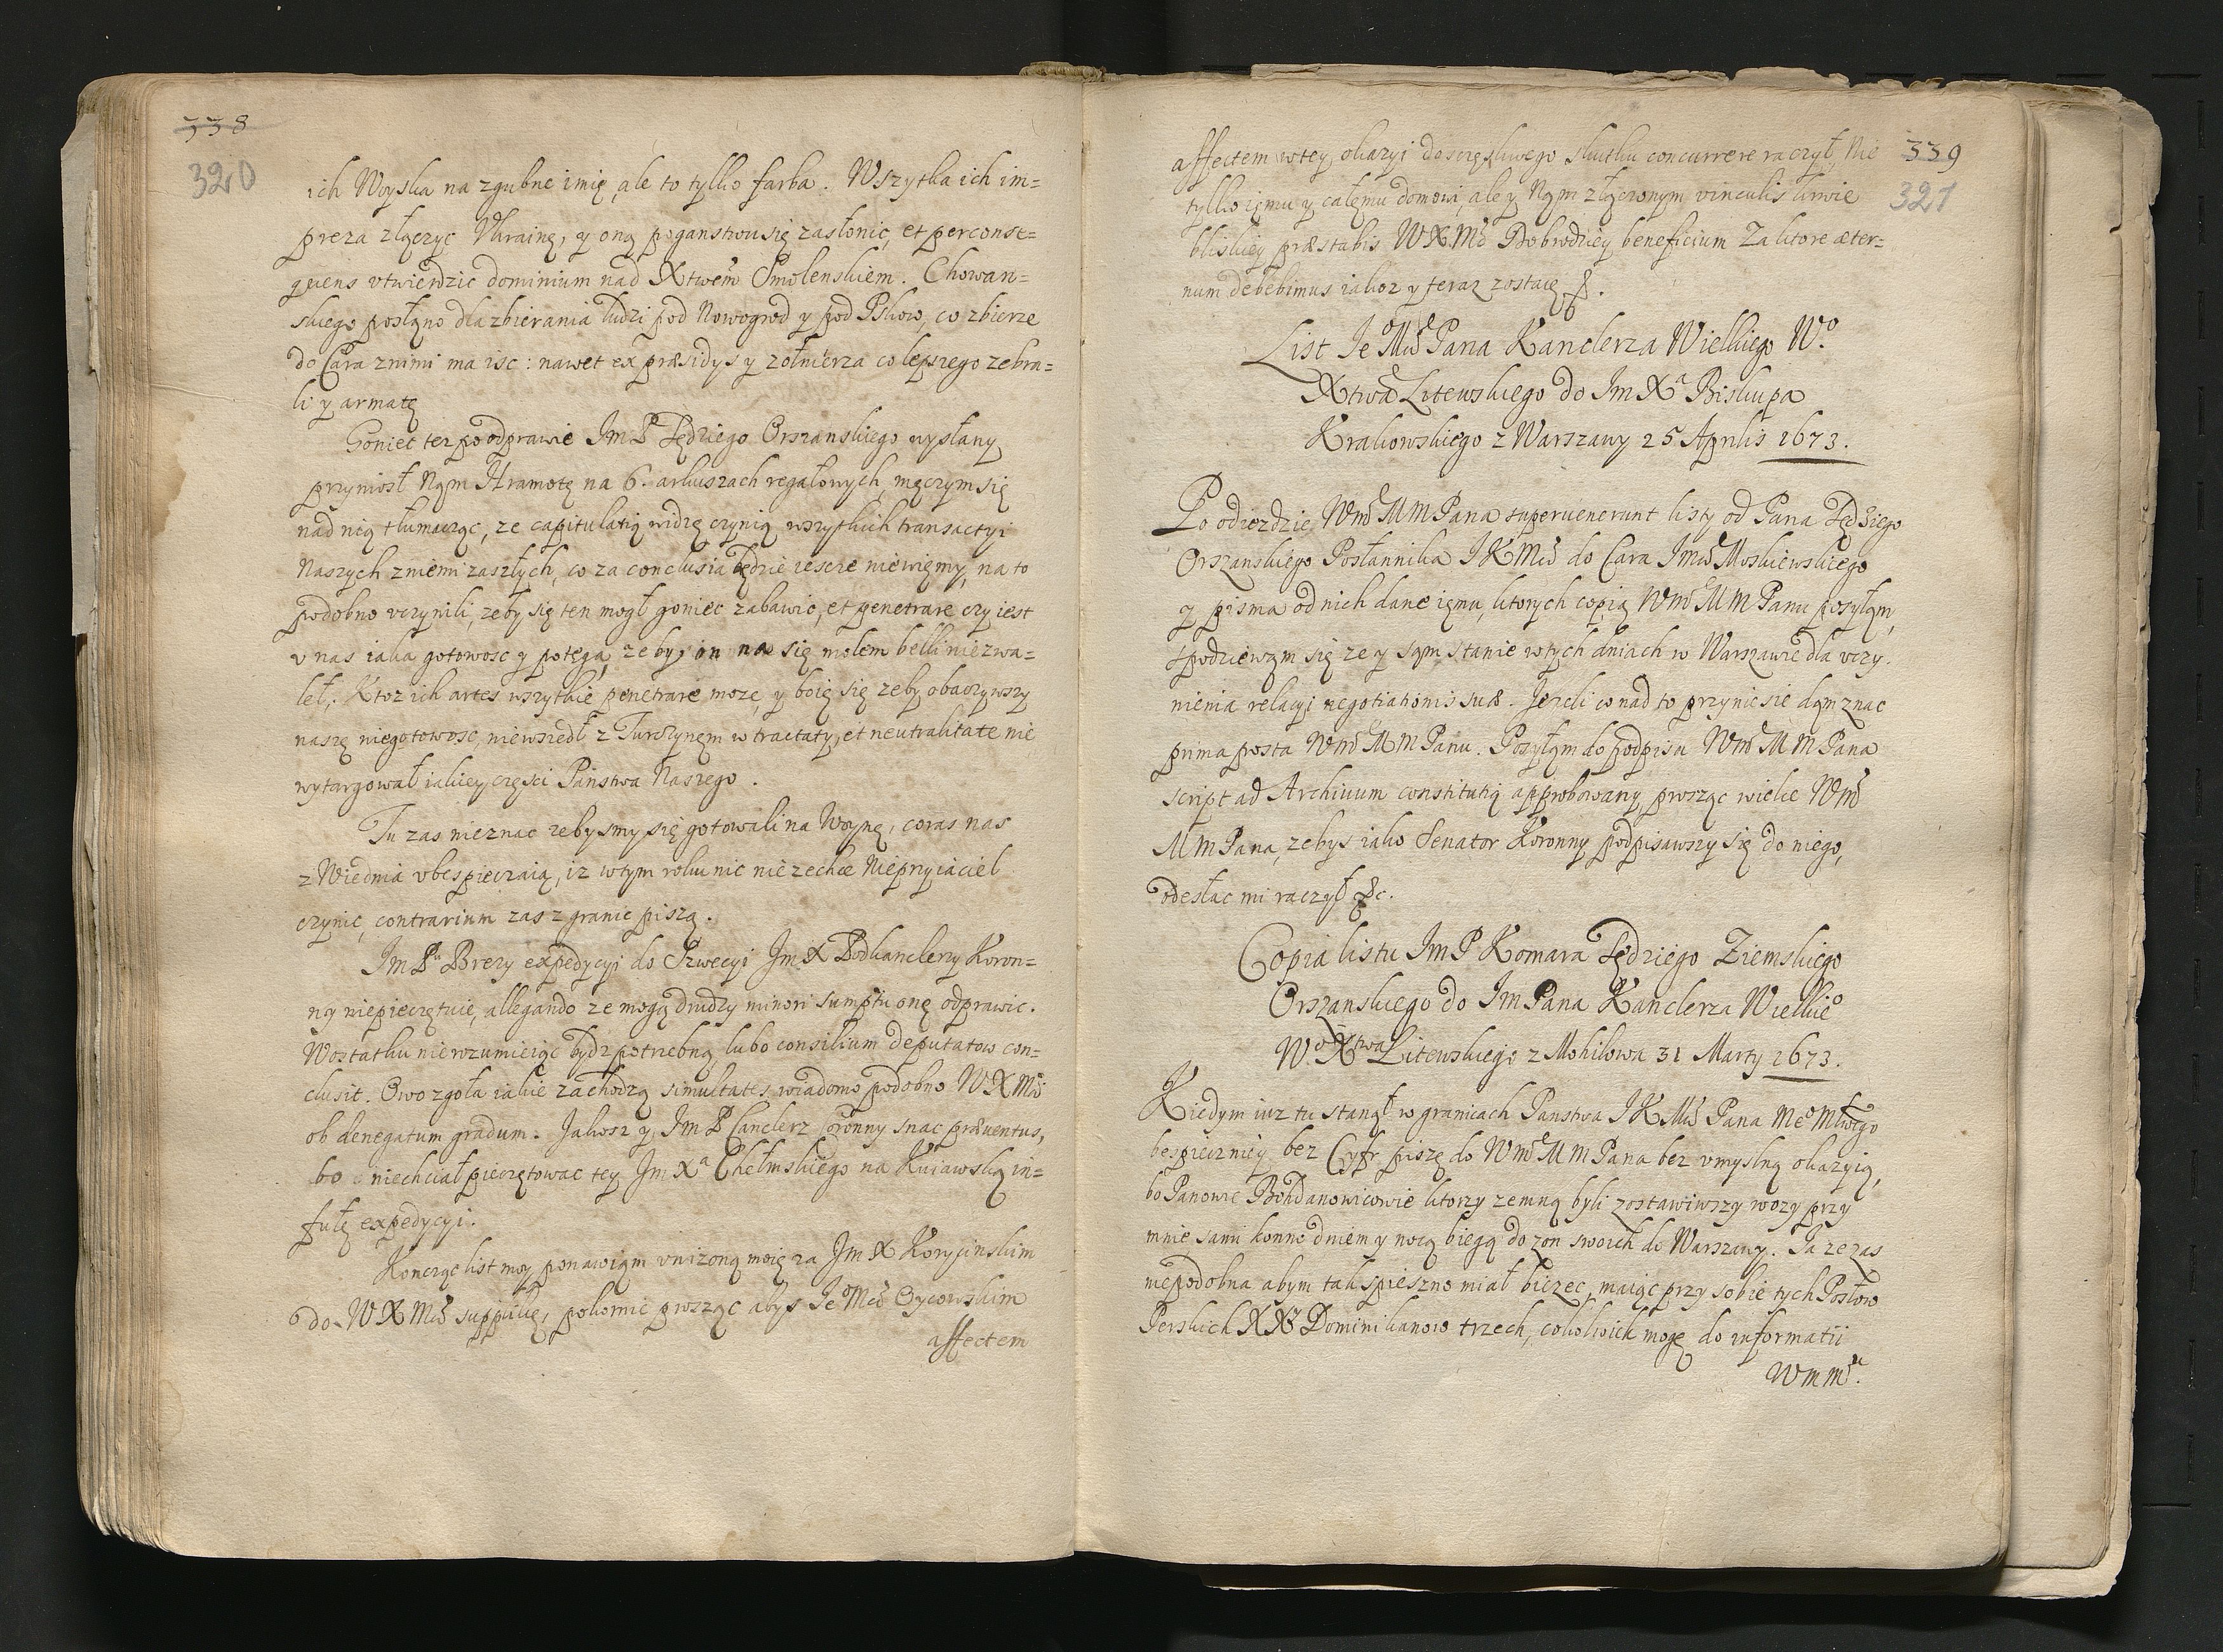 338
320
ich Woyska na zgubne imię, ale to tylko farba. Wszytka ich im=
preza złączyc Vkrainę, y oną poganstwu się zasłonic, et perconse=
quens vtwierdzic dominium nad Xtwem Smolenskiem. Chowan=
skiego posłano dla zbierania ludzi pod Nowogrod y pod Pskow, co zbierze
do Cara znimi ma isc: nawet ex præsidys y zołnierza co lepszego zebra=
li y armatę
Goniec tez po odprawie Im P Sędziego Orszanskiego wysłany
przyniosł Nąm Hramotę na 6. arkuszach regałowych, męczym się
nad nią tłumacząc, ze capitulatią widzę czynią wszytkich transactyi
Naszych zniemi zaszłych, co za conclusia będzie iescze niewięmy, na to
podobno vczynili, zeby się ten mogł goniec zabawic, et penetrare czy iest
v nas iaka gotowosc y potęga, zeby on na się molem belli niezwa=
leł. Ktoz ich artes wszytkie penetrare moze, y boię się zeby obaczywszy
naszę niegotowosc, niewszedł z Turczynęm w tractaty, et neutralitate nie
wytargował iakiey części Panstwa Naszego.
Tu zas nieznac zebysmy się gotowali na Woynę, coras nas
z Wiednia vbespieczaią, iz wtym roku nic niezechce Nieprzyiaciel
czynic, contrarium zas z granic piszą.
Im Pu Brezy expedycyi do Szwecyi Im X Podkanclerzy Koron=
ny niepieczętuie, allegando ze mogą drudzy minori sumptu onę odprawic.
Wostatku nierozumieiąc bydz potrzebną, lubo consilium deputatow con=
clusit. Owo zgoła iakie zachodzą simultates wiadomo podobno W X Mci
ob denegatum gradum. Jakosz y Im P Canclerz Coronny snac præuentus,
bo niechciał pieczętowac tey Im Xa Chełmskiego na Kuiawską in=
fułę expedycyi.
Koncząc list moy ponawiąm vnizoną moię za Im X Korycinskim
do W X Mci supplikę, pokornie prosząc abys Je Mci Oycowskim
affectem
339
321
affectem wtey okazyi do sczęsliwego skutku concurrere raczył, Nie
tylko ięmu y całęmu domowi, ale y Nąm złączonym vinculis krwie
bliskiey præstabis W X Mć Dobrodziey beneficium Za ktore æter=
num debebimus iakoz y teraz zostaię &.
List Jeo Mci Pana Kanclerza Wielkiego Wo.
Xtwa Litewskiego do Im Xa Biskupa
Krakowskiego z Warszawy 25 Aprilis 1673.
Po odiezdzie Wmć M M Pana superuenerunt listy od Pana Sędziego
Orszanskiego Posłannika J K Mci do Cara Jmci Moskiewskiego
y pisma od nich dane ięmu, ktorych copią Wmć M M Panu posyłąm,
spodziewąm się ze y sąm stanie wtych dniach w Warszawie dla vczy=
nienia relacyi negotiationis suæ. Jezeli co nad to przyniesie dąm znac
prima posta Wmć M M Panu. Posyłąm do podpisu Wmć M M Pana
script ad Archiuum constitutią approbowany, prosząc wielce Wmć
M M Pana, zebys iako Senator Koronny podpisawszy się do niego,
odesłac mi raczył &c.
Copia listu Im P Komara Sędziego Ziemskiego
Orszanskiego do Im Pana Kanclerza Wielkieo
Wo Xtwa Litewskiego z Mohilowa 31 Marty 1673.
Kiedym iuz tu stanął w granicach Panstwa J K Mci Pana Meo Młwego
bespieczniey bez Cyfr piszę do Wmć M M Pana bez vmyslną okazyią,
bo Panowie Bohdanowicowie ktorzy zemną byli zostawiwszy wozy przy
mnie sami konno dniem y nocą biegą do zon swoich do Warszawy. Ja zezas
niepodobna abym tak spieszno miał biezec, maiąc przy sobie tych Posłow
Perskich XX Dominikanow trzech, cokolwiek mogę do informatii
Wmmći.